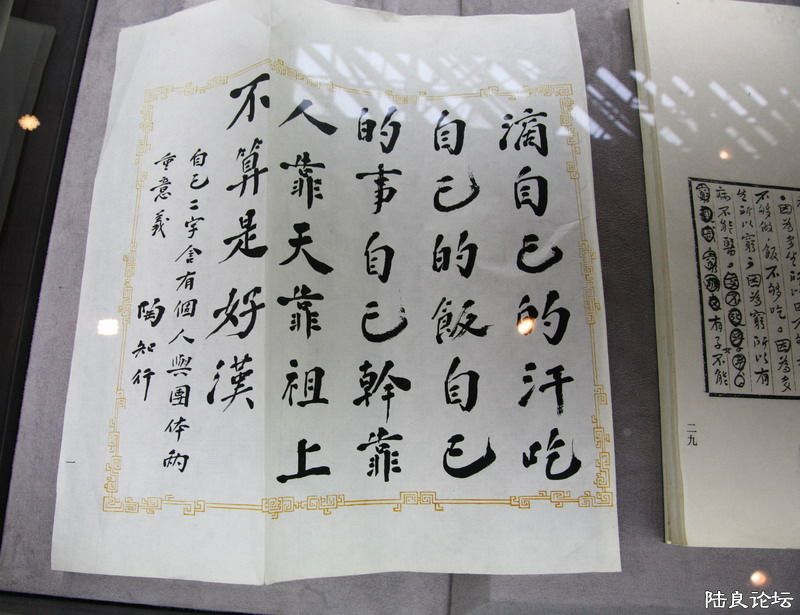 滴自己的汗吃
自己的飯自己
的事自己幹靠
人靠天靠祖上
不算是好漢
自己二字含有個人與團体兩
重意義
陶知行
一
。因為多生所以
不够做飯不够吃。因為多
生所以窮，因為窮所以有
病不能醫。
有子不能
二九
陆良论坛